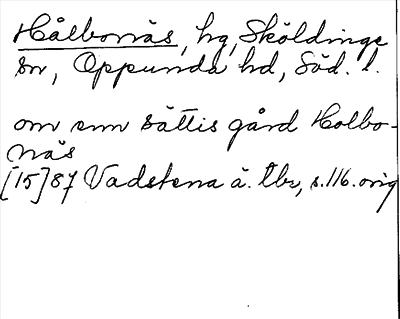 Hålbonäs, hg, Sköldinge
sn, Oppunda hd, Söd. l.
om sin sättis gård Holbo-
näs
[15]87 Vadstena ä. tbr, s. 116. orig